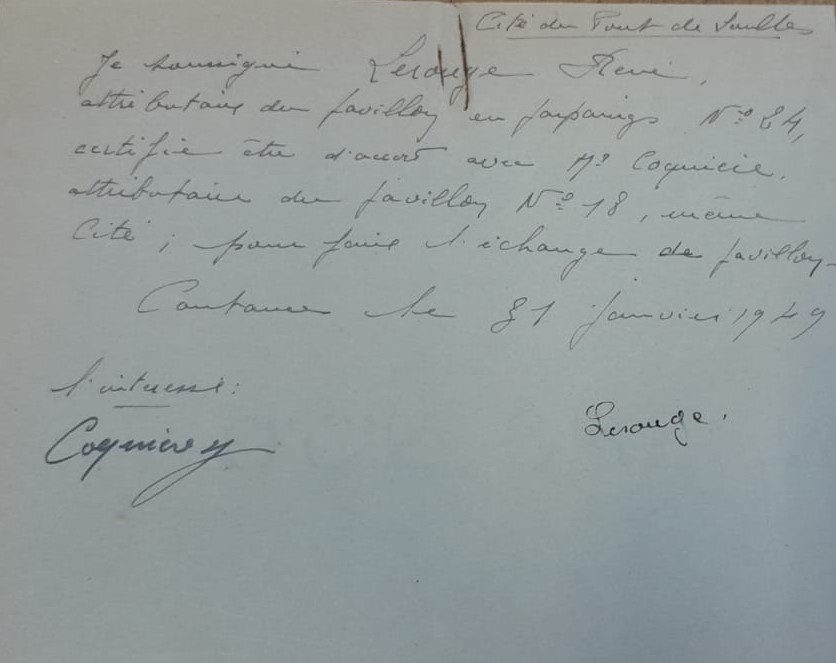 Cité du Pont de Soulles
Je soussigné Lerouge René,
attributaire du pavillon en parpaings N° 24,
certifie être d'accord avec Mr Coquière,
attributaire du pavillon N° 18, même
Cité ; pour faire l'échange de pavillon
Coutances le 31 janvier 1949
l'intéressé :
Lerouge.